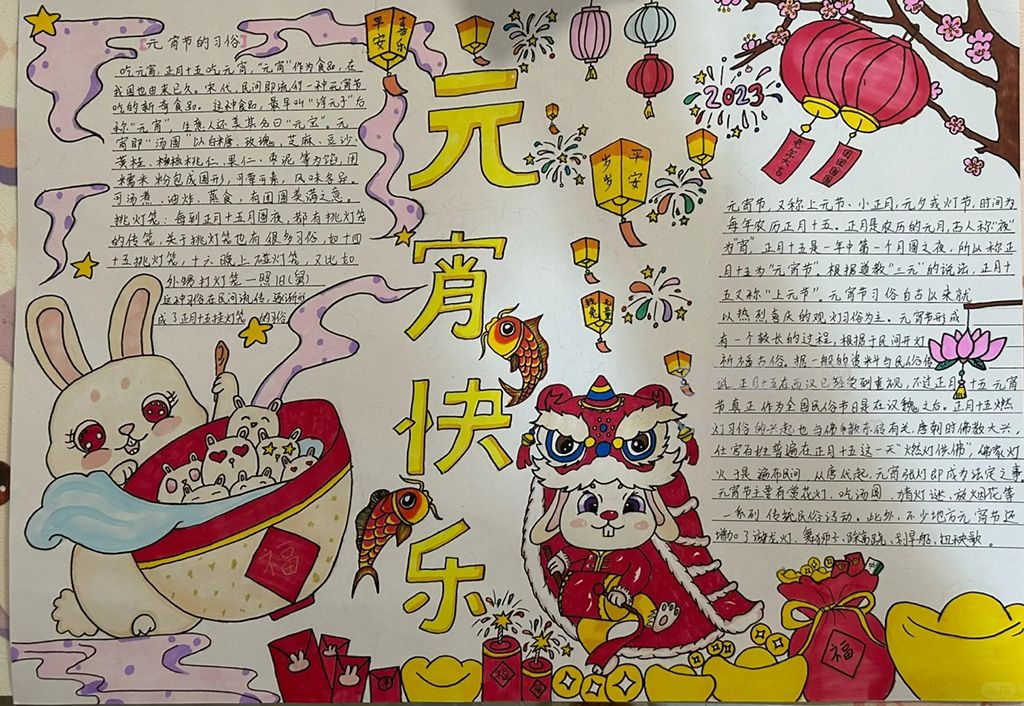 元宵节的习俗
吃元宵,正月十五吃元宵,"元宵"作为食品,在
我国也由来已久。宋代,民间即流行一种元宵节
吃的新奇食品。这种食品,最早叫"浮元子"后
称"元宵",生意人还美其名曰"元宝"。元
宵即"汤圆"以白糖、玫瑰、芝麻、豆沙、
黄桂、核桃仁、果仁、枣泥等为馅,用
糯米粉包成圆形,可荤可素,风味各异。
可汤煮、油炸、蒸食,有团圆美满之意。
挑灯笼:每到正月十五月圆夜,都有挑灯笼
的传统,关于挑灯笼也有很多习俗,如十四
十五挑灯笼,十六晚上碰灯笼,又比如
外甥打灯笼一照旧(舅)
这种习俗在民间流传,逐渐形
成了正月十五挂灯笼的习俗
平安
喜乐
元宵快乐
岁岁
平安
钱兔
2023
团团圆圆
元宵节,又称上元节、小正月、元夕或灯节,时间为
每年农历正月十五。正月是农历的元月,古人称"夜"
为"宵",正月十五是一年中第一个月圆之夜,所以称正
月十五为"元宵节"。根据道教"三元"的说法,正月十
五又称"上元节"。元宵节习俗自古以来就
以热烈喜庆的观灯习俗为主。元宵节形成
有一个较长的过程,根据于民间开灯
祈福古俗。据一般的资料与民俗传
说,正月十五在西汉已经受到重视,不过正月十五元宵
节真正作为全国民俗节日是在汉魏之后。正月十五燃
灯习俗的兴起也与佛教东传有关,唐朝时佛教大兴,
仕官百姓普遍在正月十五这一天"燃灯供佛",佛家灯
火于是遍布民间,从唐代起,元宵张灯即成为法定之事
元宵节主要有赏花灯、吃汤圆、猜灯谜、放烟花等
一系列传统民俗活动。此外,不少地方元宵节还
增加了游龙灯、舞狮子、踩高跷、划旱船、扭秧歌。
福
福
福
福